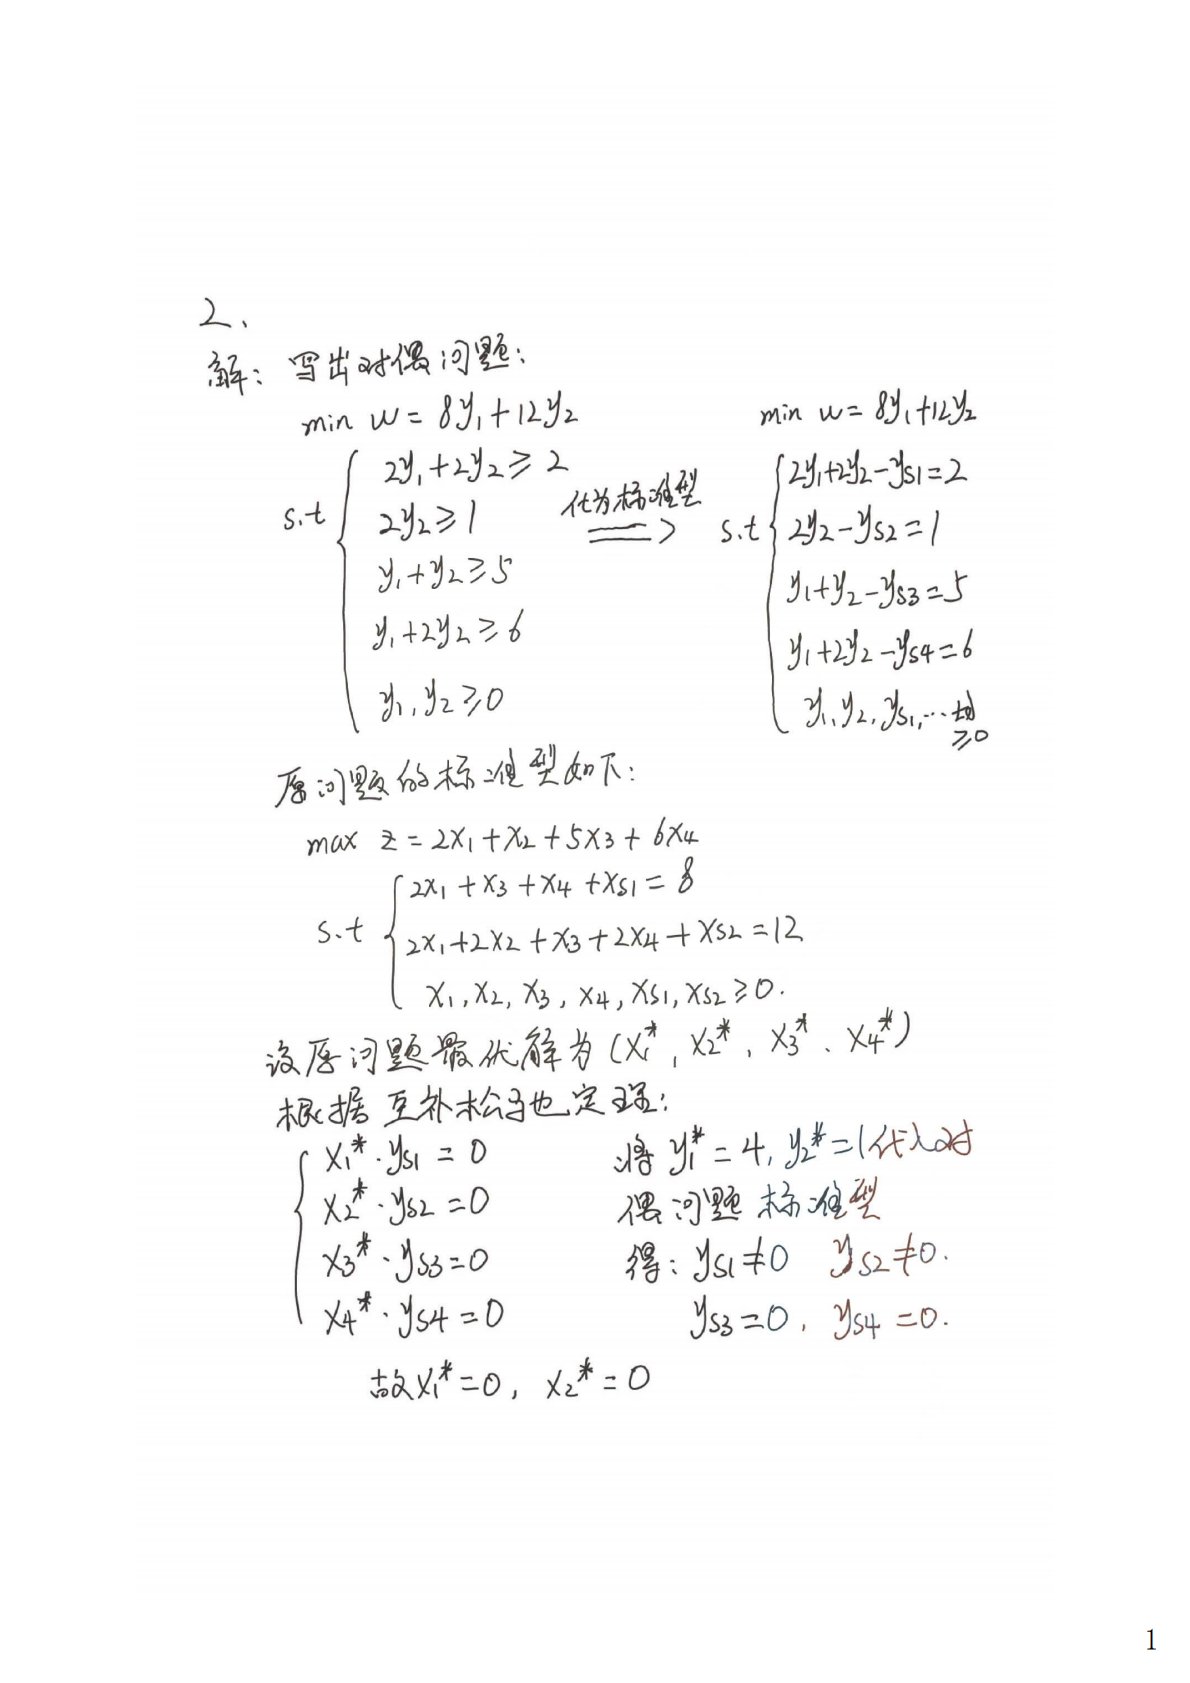 2、
解：写出对偶问题：
min w = 8y₁+12y₂
s.t
2y₁+2y₂≥2
2y₂≥1
y₁+y₂≥5
y₁+2y₂≥6
y₁,y₂≥0
化为标准型
min w = 8y₁+12y₂
s.t
2y₁+2y₂-yS1=2
2y₂-yS2=1
y₁+y₂-yS3=5
y₁+2y₂-yS4=6
y₁,y₂,yS1,…均
≥0
原问题的标准型如下：
max z = 2x₁+x₂+5x₃+6x₄
s.t
2x₁+x₃+x₄+xS1=8
2x₁+2x₂+x₃+2x₄+xS2=12
x₁,x₂,x₃,x₄,xS1,xS2≥0.
设原问题最优解为(x₁*,x₂*,x₃*、x₄*)
根据互补松弛定理：
x₁*·yS1=0
x₂*·yS2=0
x₃*·yS3=0
x₄*·yS4=0
将y₁*=4,y₂*=1代入对
偶问题标准型
得：yS1≠0 yS2≠0.
yS3=0, yS4=0.
故x₁*=0, x₂*=0
1